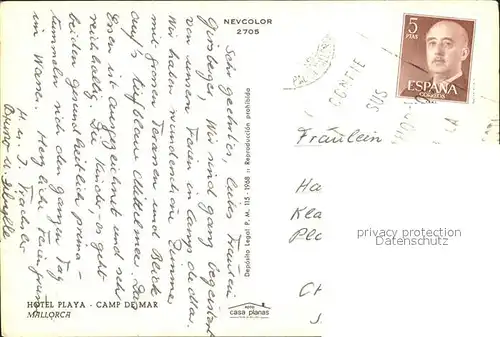 NEVCOLOR
2705
Sehr geehrtes, liebes Fräulein
Wir sind ganz begeistert
von unseren Ferien in Camp de Mar.
Wir haben wunderschöne Zimmer
mit grossen Terrassen und Blick
auf's tiefblaue Mittelmeer. Das
Essen ist ausgezeichnet und sehr
reichhaltig. Die Kinder, es geht
beiden gesundheitlich prima –
tummeln sich den ganzen Tag
im Wasser. Herzliche Feriengrüsse
H. u. J.
Bruno u. Sibylle
HOTEL PLAYA - CAMP DE MAR
MALLORCA
Depósito Legal P. M. 115 - 1968 :: Reproducción prohibida
casa planas
5
PTAS
ESPAÑA
CORREOS
GRAFIE
SUS
LA
Fräulein
Ha
Kla
Pla
privacy protection
CH